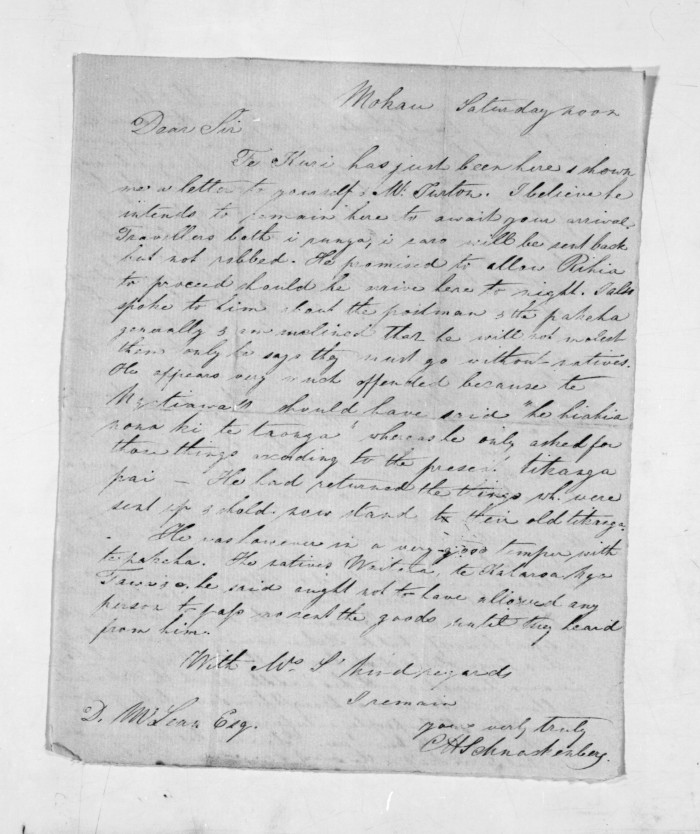 Mokau Saturday noon
Dear Sir
Te Kuri has just been here & shown
me a letter to yourself & Mr. Turton. I believe he
intends to remain here to await your arrival.
Travellers both i runga, i raro will be sent back
but not robbed. He promised to allow Rihia
to proceed should he arrive here to night. I also
spoke to him about the postman & the pakeha
generally & am inclined that he will not molest
them only he says they must go without natives.
He appears very much offended because te
should have said "he hiahia
nona ki te taonga" whereas he only asked for
those things according to the present tikanga
pai — He had returned the things wh. were
sent up & hold. now stand to their old tikanga.
He was however in a very good temper with
te pakeha. The natives Waitara, te Kaharoa
he said ought not to have allowed any
person to pass nor sent the goods until they heard
from him.
With Mrs S' kind regards
I remain
yours very truly
D. McLean Esq.
CH Schnackenberg.